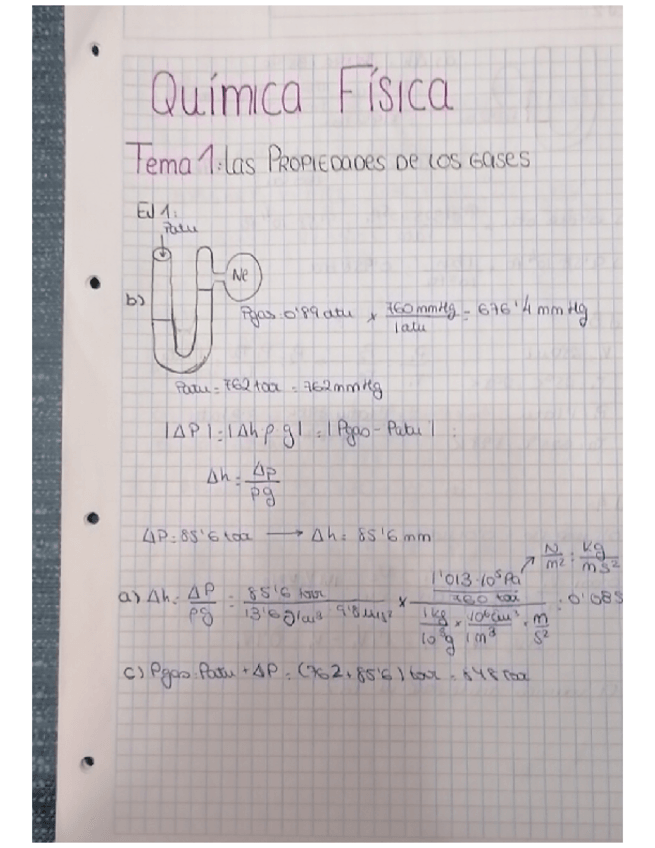 Química Física
Tema 1: Las PROPIEDADES DE LOS GASES
EJ 1:
Patm
Ne
b)
Pgas: 0'89 atm x 760 mmHg / 1 atm = 676'4 mmHg
Patm = 762 torr = 762 mmHg
|ΔP| = |Δh ρ g| = |Pgas - Patm|
Δh = ΔP / ρg
ΔP = 85'6 torr → Δh = 85'6 mm
N/m² = kg/ms²
a) Δh = ΔP / ρg = 85'6 torr / 13'6 g/cm³ 9'8 m/s² x 1'013·10⁵ Pa / 760 torr / 1 kg / 10³ g x 10⁶ cm³ / 1 m³ · m / s² = 0'085
c) Pgas = Patm + ΔP = (762 + 85'6) torr = 848 torr